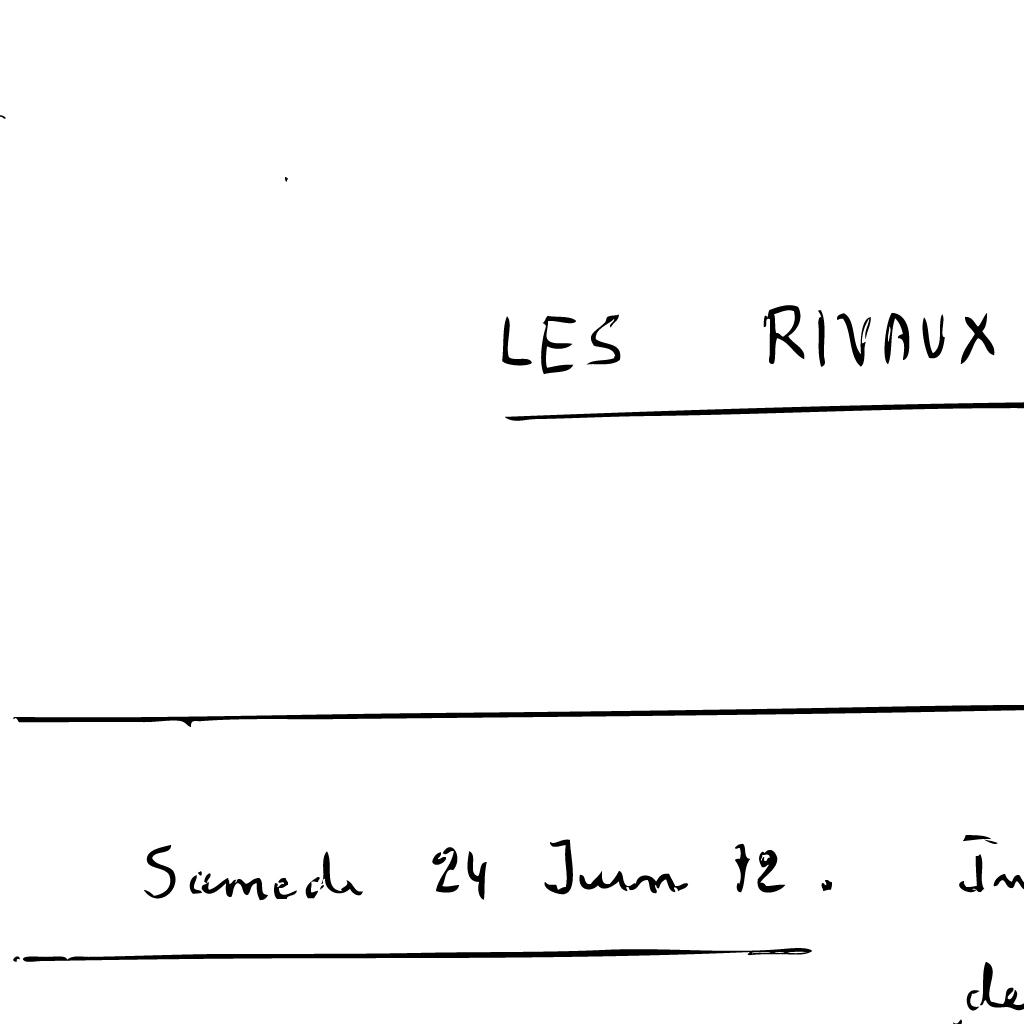 LES RIVAUX
Samedi 24 Juin 72.
de